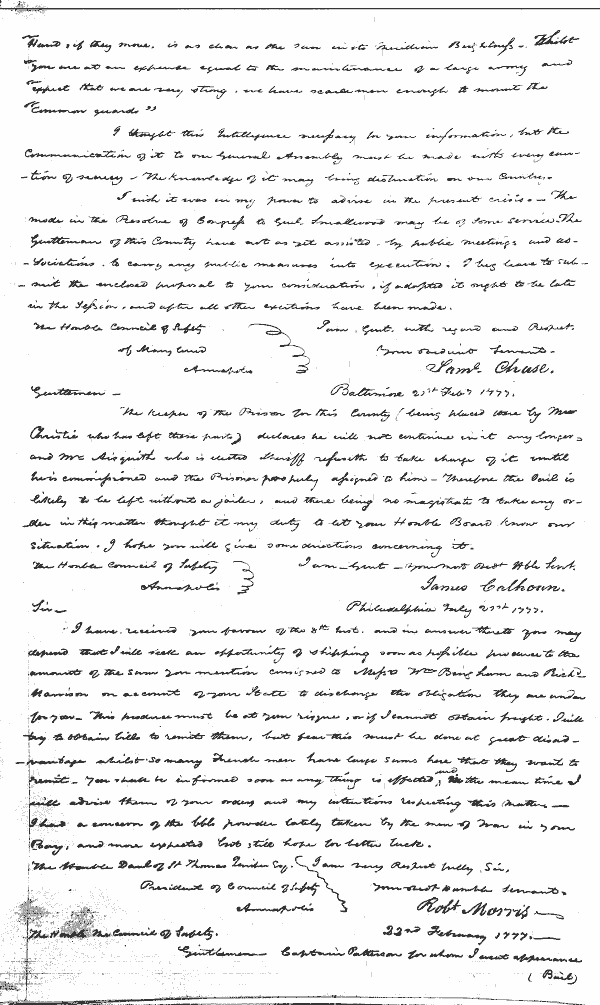 "Hand, if they move. is as clear as the sun in its meridian Brightness - Whilst
"you are at an expence equal to the maintenance of a large army and
"expect that we are very strong, we have scarce men enough to mount the
"Common guards"
I thought this Intelligence necessary for your information, but the
Communication of it to our General Assembly must be made with every cau-
-tion of secrecy - The knowledge of it may bring destruction on our Country.
I wish it was in my power to advise in the present crisis. - The
mode in the Resolve of Congress to Genl Smallwood may be of some service. The
Gentlemen of this County have not as yet assisted by public meetings and as-
-sociations, to carry any public measures into execution. I beg leave to sub-
-mit the enclosed proposal to your consideration, if adopted it ought to be late
in the Session, and after all other exertions have been made.
The Honble Council of Safety I am, Gent. with regard and Respect.
of Maryland Your obedient Servant.
Annapolis Saml. Chase.
Gentlemen - Baltimore 21st Feby 1777.
The Keeper of the Prison for this County (being placed there by Mr
Christie who has left these parts) declares he will not continue in it any longer
and Mr Aisquith who is elected Sheriff refuseth to take charge of it until
he is commissioned and the Prison properly assigned to him - Therefore the Jail is
likely to be left without a jailer, and there being no magistrate to take any or-
-der in this matter thought it my duty to let your Honble Board know our
situation. I hope you will give some directions concerning it.
The Honble Council of Safety I am - Gent - Your most Obdt Hble Servt.
Annapolis James Calhoun.
Sir - Philadelphia Feby 21st 1777.
I have received your favour of the 8th Inst. and in answer thereto you may
depend that I will seek an opportunity of shipping soon as possible produce to the
amounts of the sum you mention consigned to Messrs Wm Bingham and Richd
Harrison on account of your State to discharge the obligation they are under
for you - This produce must be at your risque, or if I cannot obtain freight. I will
try to obtain bills to remit them, but fear this must be done at great disad-
-vantage whilst so many French men have large sums here that they want to
remit - You shall be informed soon as any thing is effected, and in the mean time I
will advise them of your orders and my intentions respecting this matter -
I had a concern of the bbls powder lately taken by the men of War in your
Bay, and more expected but still hope for better luck.
The Honble Danl of St Thomas Jenifer Esq. I am very Respectfully, Sir,
President of Council of Safety Your obedt humble Servant.
Annapolis Robt Morris
The Honble The Council of Safety. 22nd February 1777.
Gentlemen - Captain Patterson for whom I went appearance
(Bail)